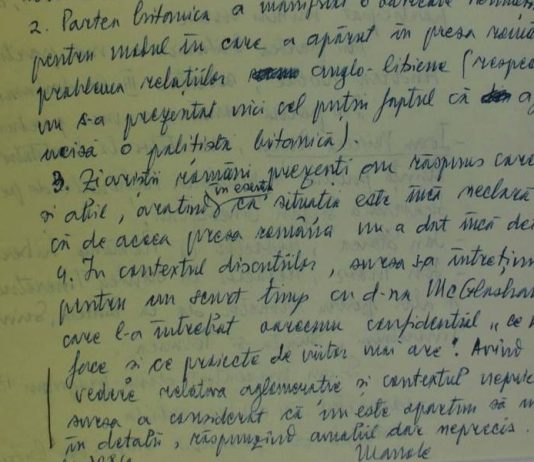 2. Partea britanica a manifestat o oarecare
pentru modul în care a apărut în presa
problema relațiilor anglo-libiene (
nu s-a prezentat nici cel puțin faptul că
ucisă o polițistă britanică).
3. Ziariștii români prezenți au răspuns
și abil, arătînd în esență că situația este încă neclară
că de aceea presa română nu a dat încă
4. În contextul discuțiilor, sursa s-a
pentru un scurt timp cu d-na
care l-a întrebat oarecum confidențial „ce
face și ce proiecte de viitor mai are". Avînd
vedere relativa aglomerație și contextul
sursa a considerat că nu este oportun să
în detalii, răspunzînd amabil dar neprecis.
Manole